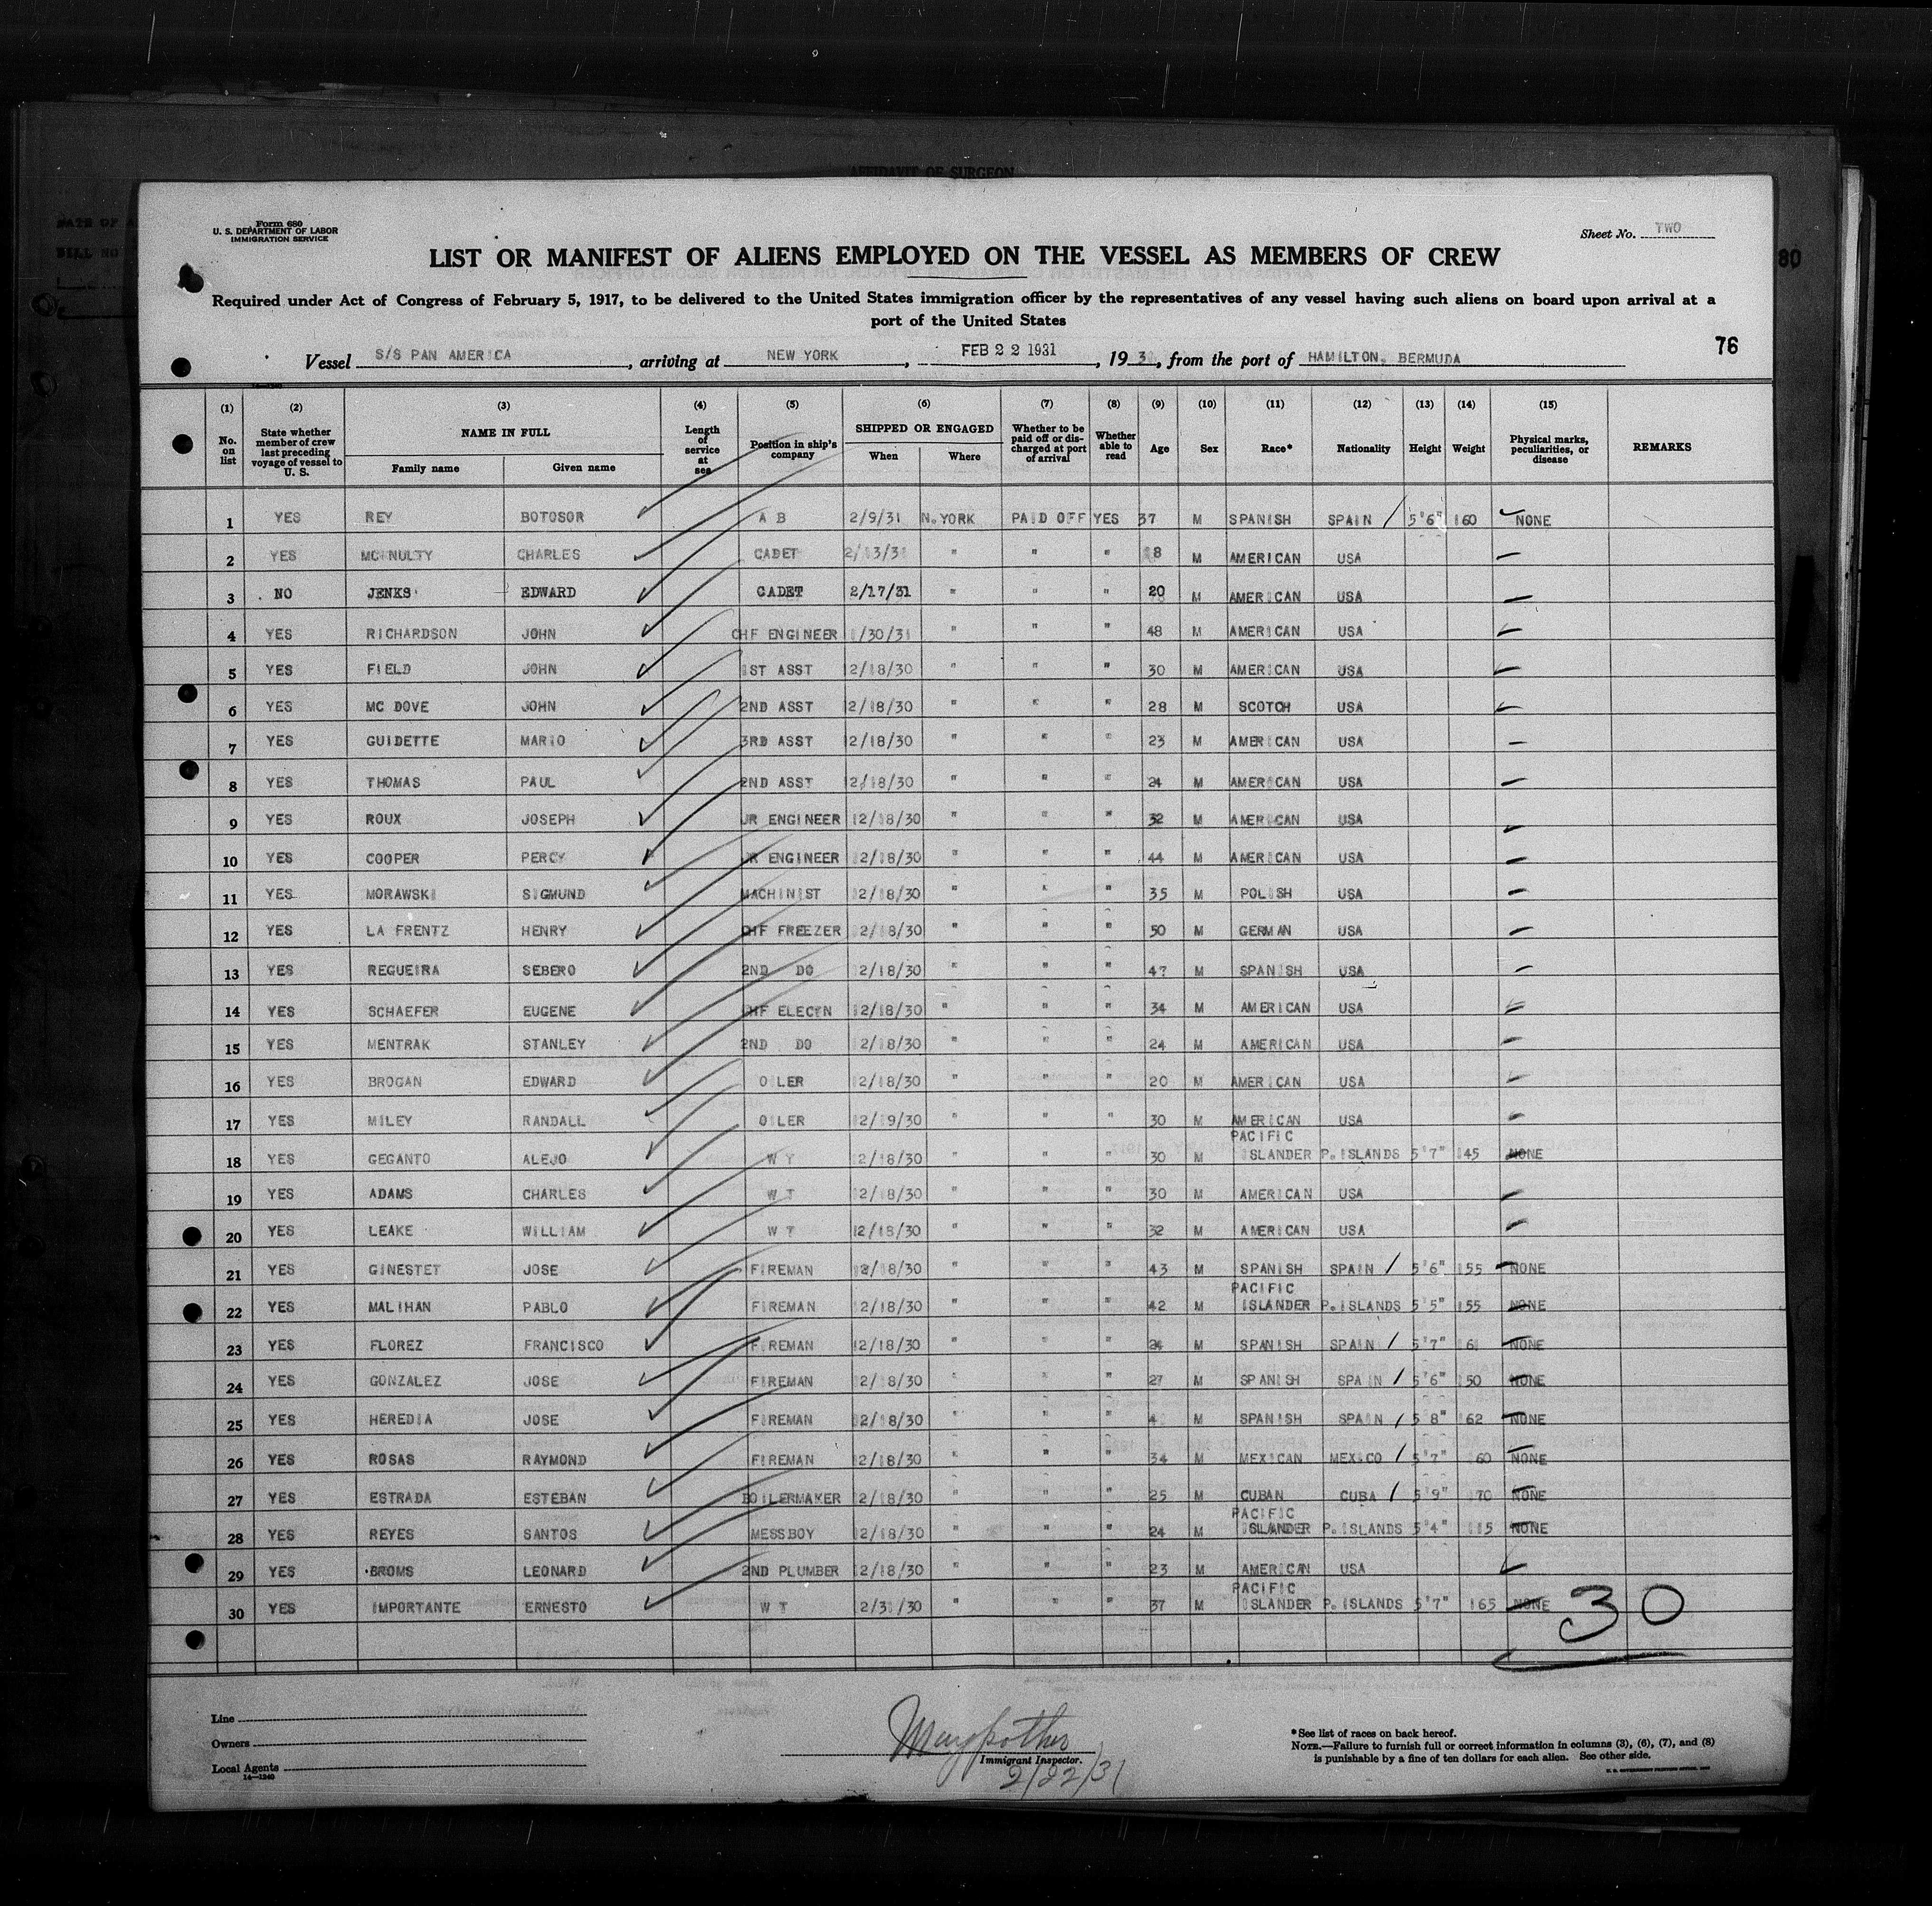 AFFIDAVIT OF SURGEON
Form 680
U. S. DEPARTMENT OF LABOR
IMMIGRATION SERVICE
Sheet No. TWO
LIST OR MANIFEST OF ALIENS EMPLOYED ON THE VESSEL AS MEMBERS OF CREW
80
Required under Act of Congress of February 5, 1917, to be delivered to the United States immigration officer by the representatives of any vessel having such aliens on board upon arrival at a
port of the United States
76
Vessel S/S PAN AMERICA, arriving at NEW YORK, FEB 22 1931, 193, from the port of HAMILTON, BERMUDA
(1) No. on list (2) State whether member of crew last preceding voyage of vessel to U. S. (3) NAME IN FULL Family name Given name (4) Length of service at sea (5) Position in ship's company (6) SHIPPED OR ENGAGED When Where (7) Whether to be paid off or discharged at port of arrival (8) Whether able to read (9) Age (10) Sex (11) Race* (12) Nationality (13) Height (14) Weight (15) Physical marks, peculiarities, or disease REMARKS
1 YES REY BOTOSOR A B 2/9/31 N.YORK PAID OFF YES 37 M SPANISH SPAIN / 5'6" 160 NONE
2 YES MC NULTY CHARLES CADET 2/13/31 " " " 18 M AMERICAN USA
3 NO JENKS EDWARD CADET 2/17/31 " " " 20 M AMERICAN USA
4 YES RICHARDSON JOHN CHF ENGINEER 1/30/31 " " " 48 M AMERICAN USA
5 YES FIELD JOHN 1ST ASST 12/18/30 " " " 30 M AMERICAN USA
6 YES MC DOVE JOHN 2ND ASST 12/18/30 " " " 28 M SCOTCH USA
7 YES GUIDETTE MARIO 3RD ASST 12/18/30 " " " 23 M AMERICAN USA
8 YES THOMAS PAUL 2ND ASST 12/18/30 " " " 24 M AMERICAN USA
9 YES ROUX JOSEPH JR ENGINEER 12/18/30 " " " 32 M AMERICAN USA
10 YES COOPER PERCY JR ENGINEER 12/18/30 " " " 44 M AMERICAN USA
11 YES MORAWSKI SIGMUND MACHINIST 12/18/30 " " " 35 M POLISH USA
12 YES LA FRENTZ HENRY CHF FREEZER 12/18/30 " " " 50 M GERMAN USA
13 YES REGUEIRA SEBERO 2ND DO 12/18/30 " " " 47 M SPANISH USA
14 YES SCHAEFER EUGENE CHF ELECTN 12/18/30 " " " 34 M AMERICAN USA
15 YES MENTRAK STANLEY 2ND DO 12/18/30 " " " 24 M AMERICAN USA
16 YES BROGAN EDWARD OILER 12/18/30 " " " 20 M AMERICAN USA
17 YES MILEY RANDALL OILER 12/19/30 " " " 30 M AMERICAN USA
18 YES GEGANTO ALEJO W T 12/18/30 " " " 30 M PACIFIC ISLANDER P. ISLANDS 5'7" 145 NONE
19 YES ADAMS CHARLES W T 12/18/30 " " " 30 M AMERICAN USA
20 YES LEAKE WILLIAM W T 12/18/30 " " " 32 M AMERICAN USA
21 YES GINESTET JOSE FIREMAN 12/18/30 " " " 43 M SPANISH SPAIN / 5'6" 155 NONE
22 YES MALIHAN PABLO FIREMAN 12/18/30 " " " 42 M PACIFIC ISLANDER P. ISLANDS 5'5" 155 NONE
23 YES FLOREZ FRANCISCO FIREMAN 12/18/30 " " " 24 M SPANISH SPAIN / 5'7" 161 NONE
24 YES GONZALEZ JOSE FIREMAN 12/18/30 " " " 27 M SPANISH SPAIN / 5'6" 150 NONE
25 YES HEREDIA JOSE FIREMAN 12/18/30 " " " 41 M SPANISH SPAIN / 5'8" 162 NONE
26 YES ROSAS RAYMOND FIREMAN 12/18/30 " " " 34 M MEXICAN MEXICO / 5'7" 160 NONE
27 YES ESTRADA ESTEBAN BOILERMAKER 12/18/30 " " " 25 M CUBAN CUBA / 5'9" 170 NONE
28 YES REYES SANTOS MESSBOY 12/18/30 " " " 24 M PACIFIC ISLANDER P. ISLANDS 5'4" 115 NONE
29 YES BROMS LEONARD 2ND PLUMBER 12/18/30 " " " 23 M AMERICAN USA
30 YES IMPORTANTE ERNESTO W T 12/31/30 " " " 37 M PACIFIC ISLANDER P. ISLANDS 5'7" 165 NONE
30
Line
Owners
Local Agents
14—1240
Immigrant Inspector.
2/22/31
*See list of races on back hereof.
NOTE.—Failure to furnish full or correct information in columns (3), (6), (7), and (8)
is punishable by a fine of ten dollars for each alien. See other side.